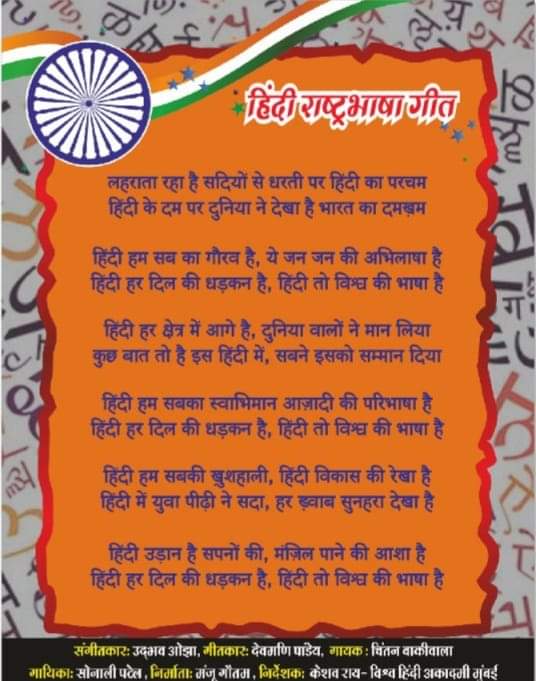 हिंदी राष्ट्रभाषा गीत
लहराता रहा है सदियों से धरती पर हिंदी का परचम
हिंदी के दम पर दुनिया ने देखा है भारत का दमख़म
हिंदी हम सब का गौरव है, ये जन जन की अभिलाषा है
हिंदी हर दिल की धड़कन है, हिंदी तो विश्व की भाषा है
हिंदी हर क्षेत्र में आगे है, दुनिया वालों ने मान लिया
कुछ बात तो है इस हिंदी में, सबने इसको सम्मान दिया
हिंदी हम सबका स्वाभिमान आज़ादी की परिभाषा है
हिंदी हर दिल की धड़कन है, हिंदी तो विश्व की भाषा है
हिंदी हम सबकी ख़ुशहाली, हिंदी विकास की रेखा है
हिंदी में युवा पीढ़ी ने सदा, हर ख़्वाब सुनहरा देखा है
हिंदी उड़ान है सपनों की, मंज़िल पाने की आशा है
हिंदी हर दिल की धड़कन है, हिंदी तो विश्व की भाषा है
संगीतकार: उद्भव ओझा, गीतकार: देवमणि पांडेय, गायक : चिंतन बाकीवाला
गायिका: सोनाली पटेल, निर्माता: मंजू गौतम, निर्देशक: केशव राय- विश्व हिंदी अकादमी मुंबई